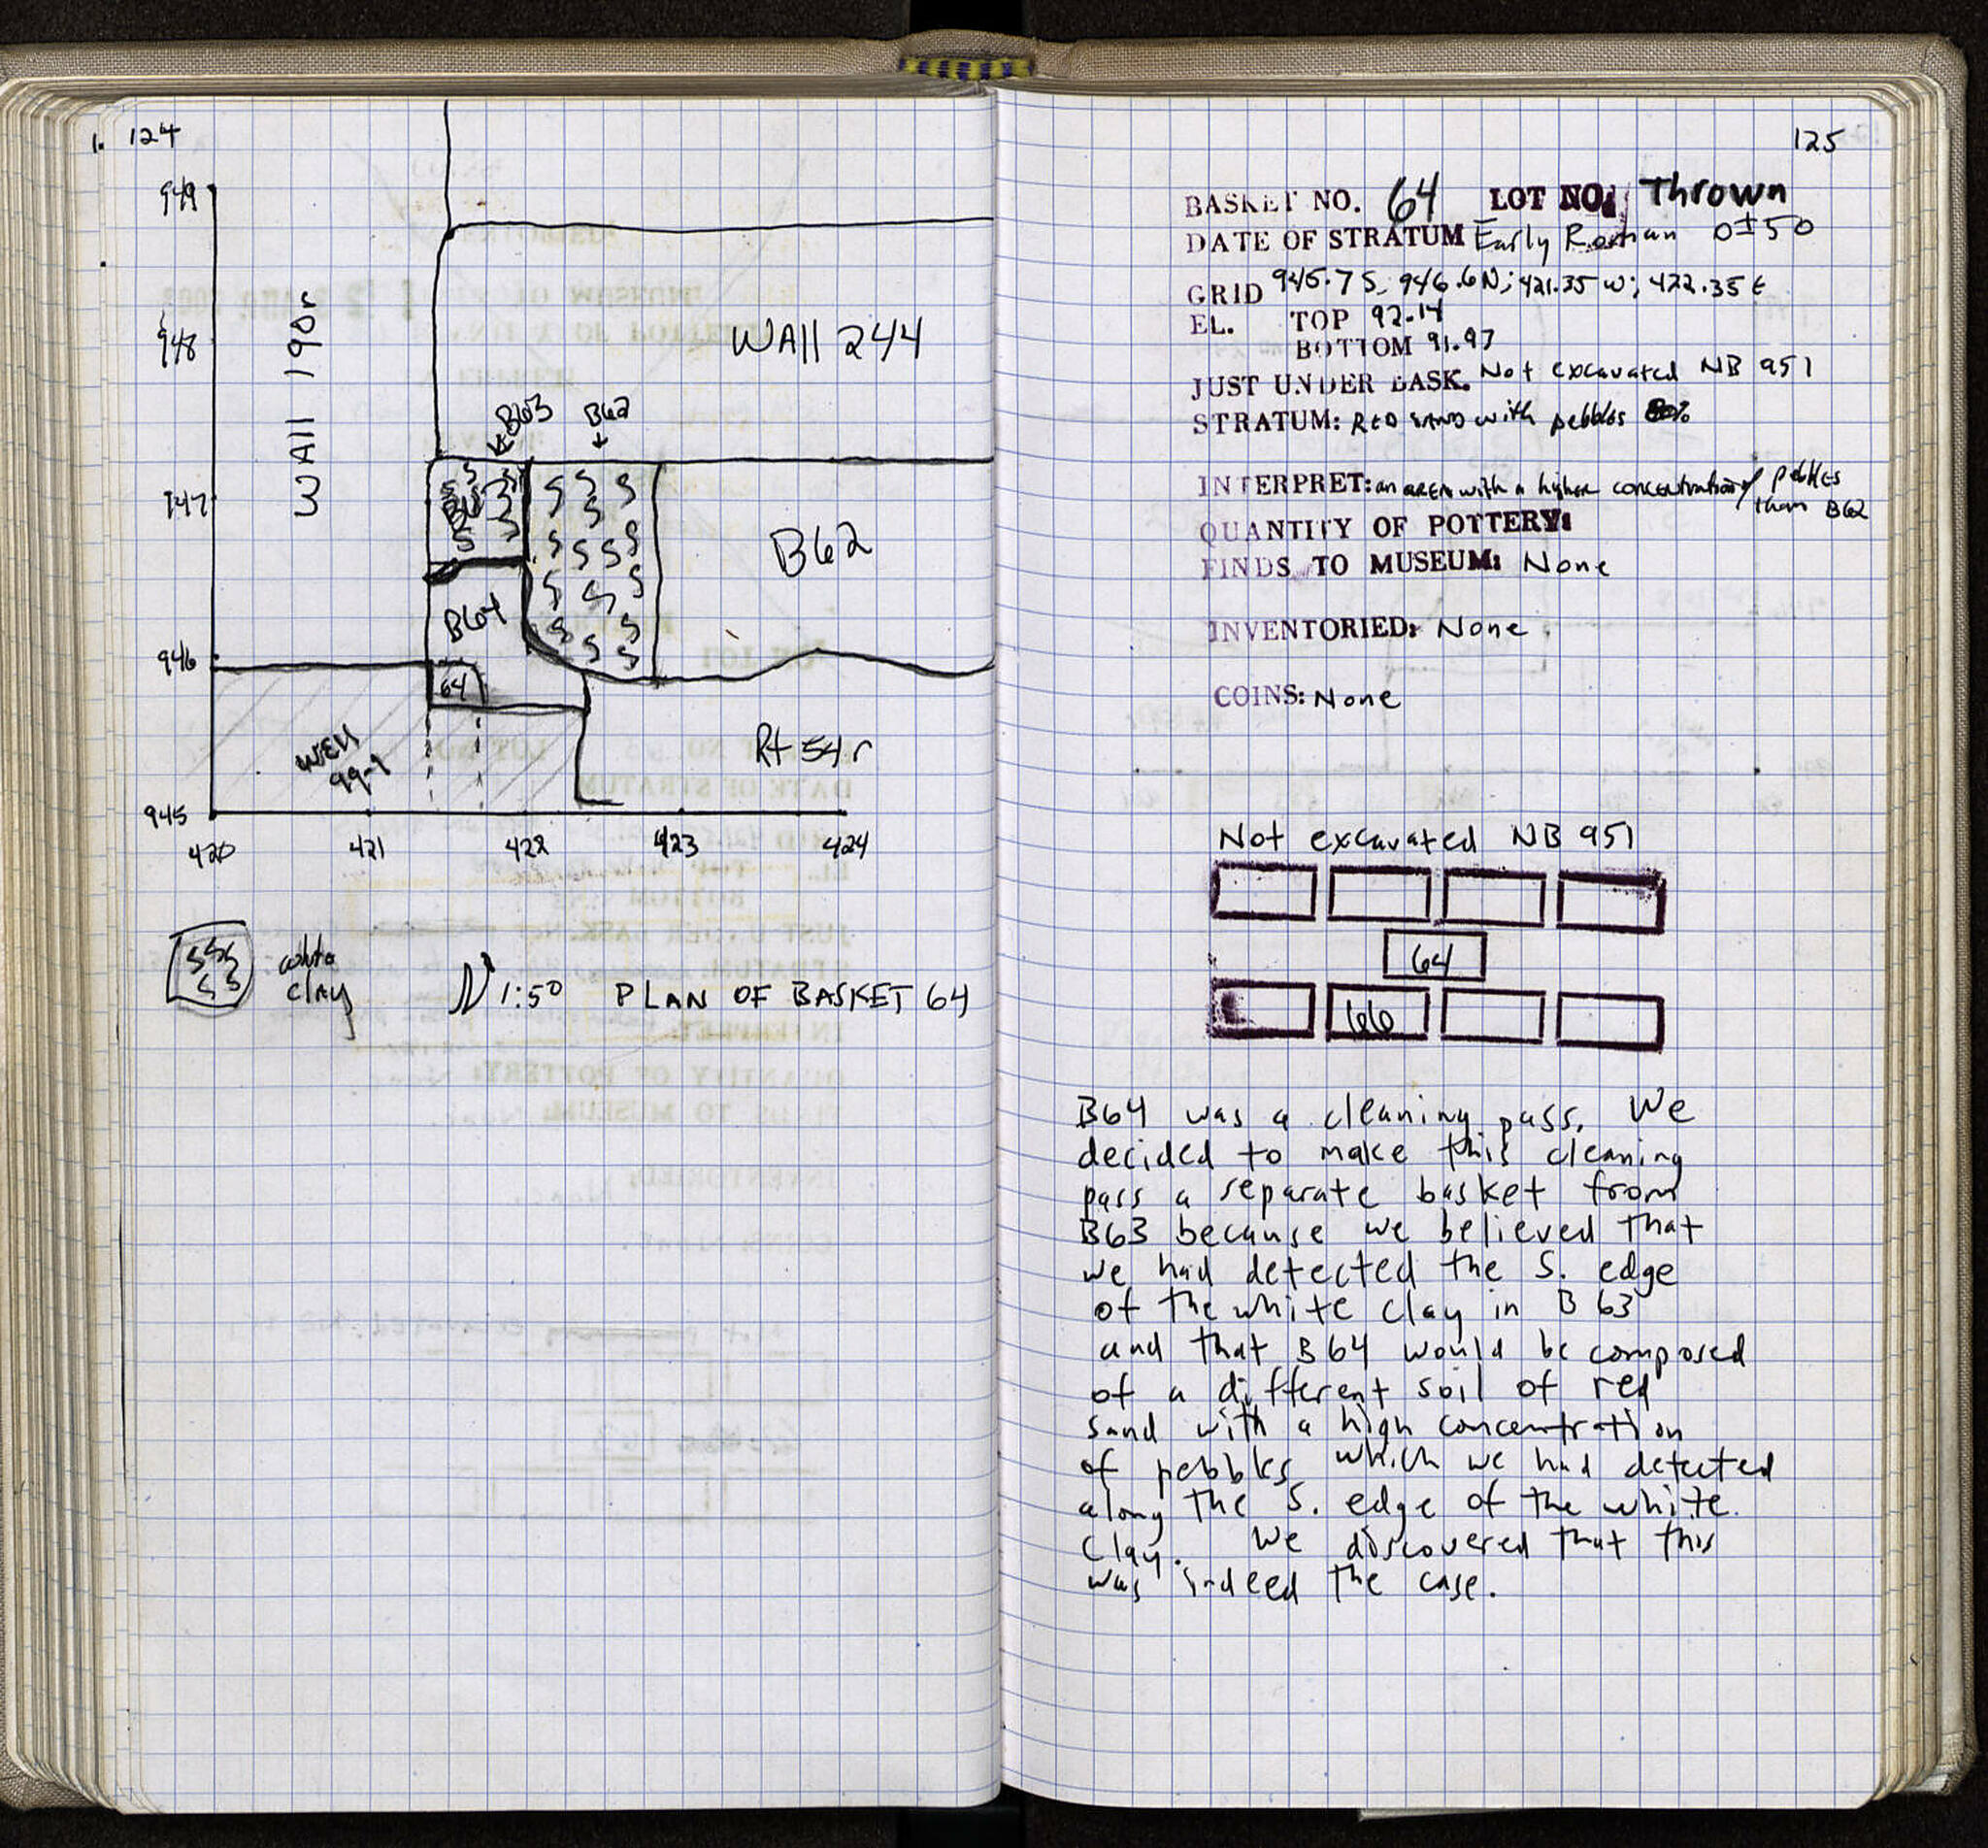 124
949
948
947
946
945
420
421
422
423
424
Wall 190r
Wall 244
B63
B62
B63
B62
B64
64
Well
99-1
Rt 54r
white
clay
1:50 PLAN OF BASKET 64
125
BASKET NO. 64 LOT NO. Thrown
DATE OF STRATUM Early Roman 0±50
GRID 945.75 946.6N; 421.35 W; 422.35 E
EL. TOP 92.14
BOTTOM 91.97
JUST UNDER BASK. Not excavated NB 951
STRATUM: Red sand with pebbles
INTERPRET: an area with a higher concentration of pebbles
than B62
QUANTITY OF POTTERY:
FINDS TO MUSEUM: None
INVENTORIED: None
COINS: None
Not excavated NB 951
64
66
B64 was a cleaning pass. We
decided to make this cleaning
pass a separate basket from
B63 because we believed that
we had detected the S. edge
of the white clay in B 63
and that B64 would be composed
of a different soil of red
sand with a high concentration
of pebbles which we had detected
along the S. edge of the white
clay. We discovered that this
was indeed the case.